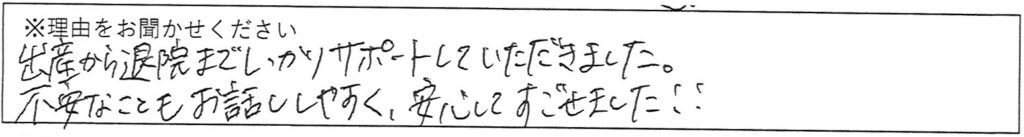 ※理由をお聞かせください
出産から退院までしっかりサポートしていただきました。
不安なこともお話ししやすく、安心してすごせました!!